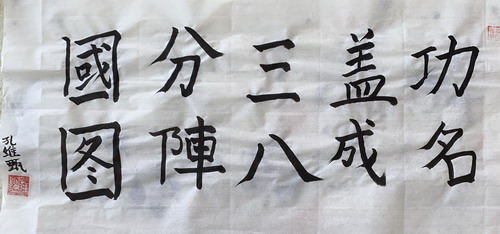 功名
盖成
三八
分陣
國图
孔維甄